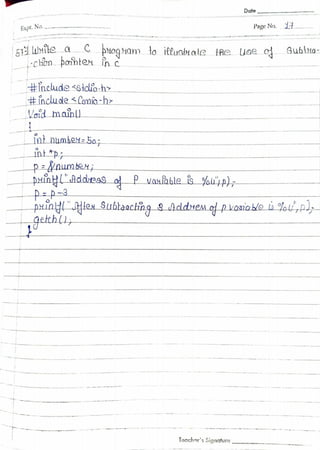 Date
Expt. No. Page No. 17
51] Write a C program to illustrate the use of Subtra-
-ction pointer in c
#include <stdio.h>
#include <Conio.h>
Void main()
{
int number=50;
int *p;
p = &number;
printf("Address of P variable is %u",p);
p = p-3
printf("After Subtracting 3 Address of p variable is %u",p);
getch();
}
Teacher's Signature